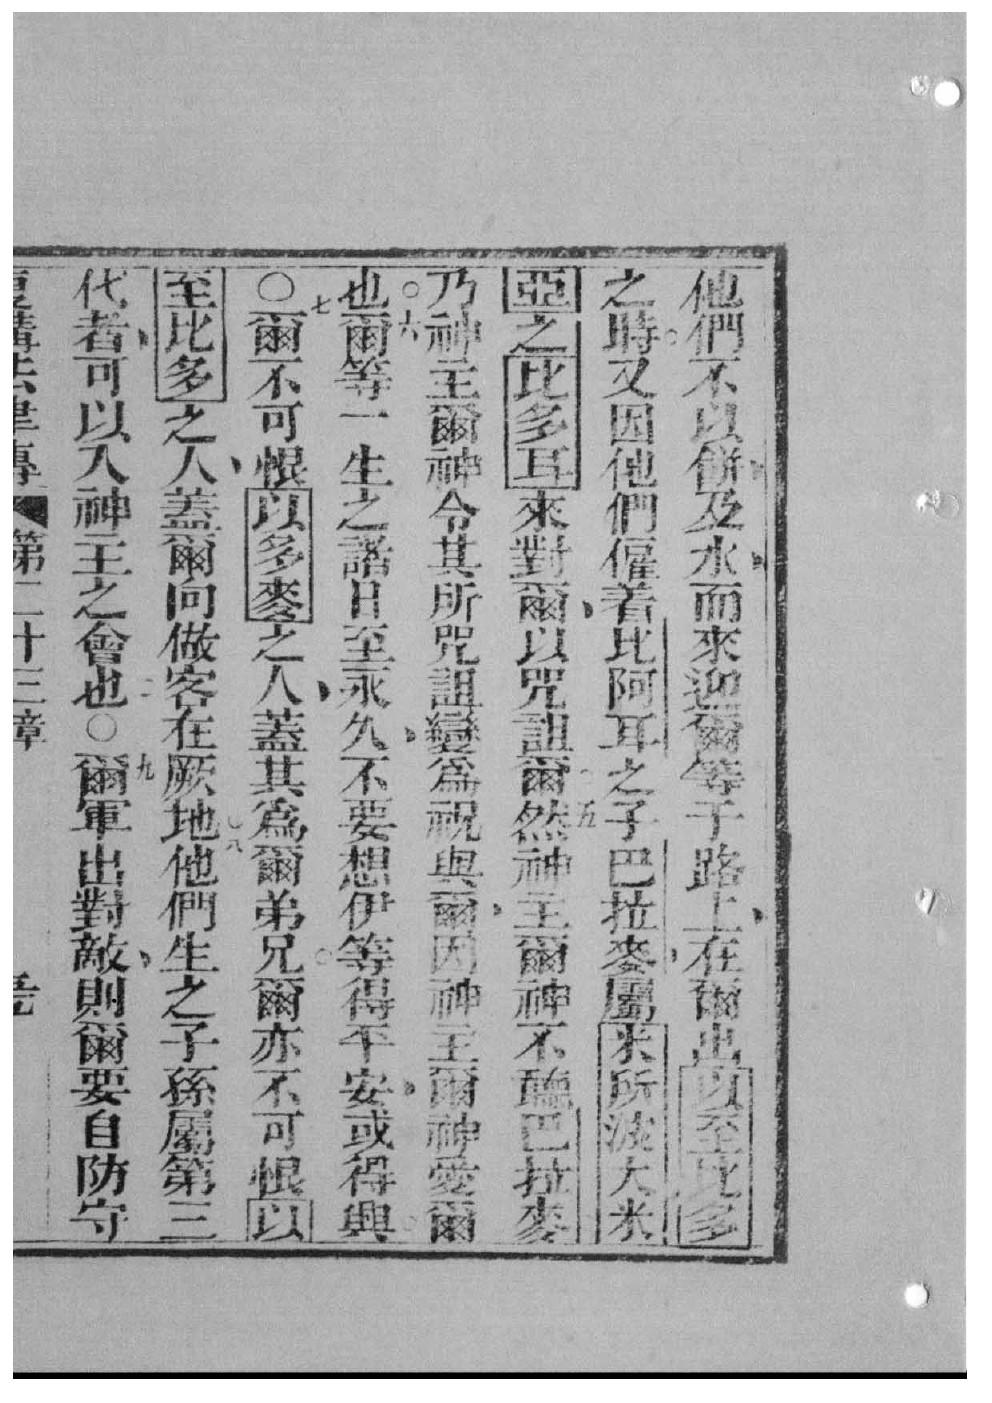 他們不以餅及水而來迎爾等于路上在爾出以至比多
之時又因他們僱着比阿耳之子巴拉麥屬米所波大米
亞之比多耳來對爾以咒詛爾五然神主爾神不聽巴拉麥
乃神主爾神令其所咒詛變為祝與爾因神主爾神愛爾
也六爾等一生之諸日至永久不要想伊等得平安或得興
○七爾不可恨以多麥之人蓋其為爾弟兄爾亦不可恨以
至比多之人蓋爾向做客在厥地八他們生之子孫屬第三
代者可以入神主之會也○九爾軍出對敵則爾要自防守
復講法律傳 第二十三章